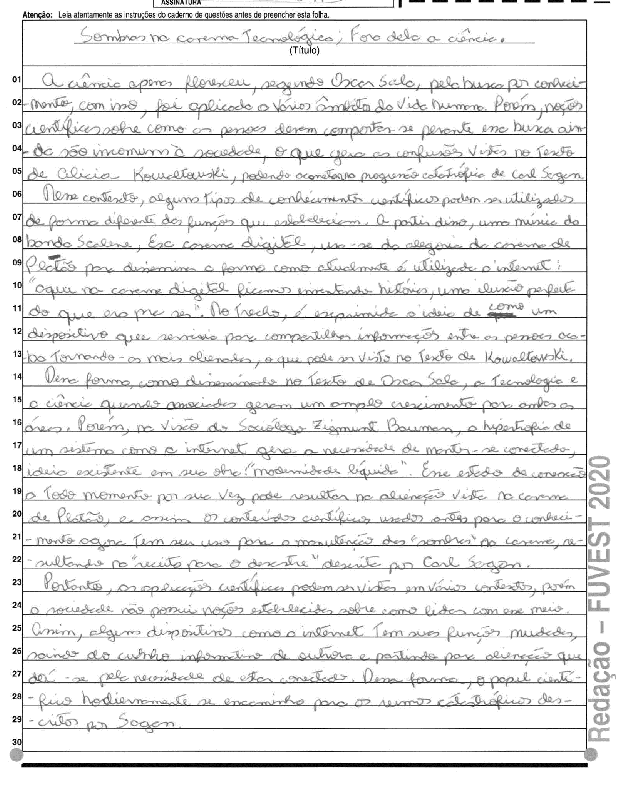 ASSINATURA
Atenção: Leia atentamente as instruções do caderno de questões antes de preencher esta folha.
Sombras na caverna Tecnológica; Fora dela a ciência.
(Título)
01 A ciência apenas floresceu, segundo Oscar Sala, pela busca por conheci-
02 mento, com isso, foi aplicado a vários âmbitos da vida humana. Porém, noções
03 científicas sobre como as pessoas devem comportar-se perante essa busca ain-
04 -da são incomuns à sociedade, o que gera as confusões vistas no Texto
05 de Alicia Kowaltowski, podendo acometer a progressão catastrófica de Carl Sagan.
06 Nesse contexto, alguns tipos de conhecimentos científicos podem ser utilizados
07 de forma diferente das funções que estabeleciam. A partir disso, uma música da
08 banda Scalene, Esc caverna digital, usa-se da alegoria da caverna de
09 Platão para disseminar a forma como atualmente é utilizada a internet:
10 "aqui na caverna digital ficamos inventando histórias, uma ilusão perfeita
11 do que era pra ser". No Trecho, é exprimida a ideia de como um
12 dispositivo que serviria para compartilhar informações entre as pessoas aca-
13 ba Tornando-as mais alienadas, o que pode ser visto no Texto de Kowaltowski.
14 Dessa forma, como disseminado no Texto de Oscar Sala, a Tecnologia e
15 a ciência quando associadas geram um amplo crescimento para ambas as
16 áreas. Porém, na visão do Sociólogo Zigmunt Bauman, a hipertrofia de
17 um sistema como a internet gera a necessidade de manter-se conectado,
18 ideia existente em sua obra "modernidade líquida". Esse estado de conexão
19 a Todo momento por sua vez pode resultar na alienação vista na caverna
20 de Platão, e assim os conteúdos científicos usados antes para o conheci-
21 -mento agora Tem seu uso para a manutenção das "sombras" na caverna, re-
22 -sultando na "receita para o desastre" descrita por Carl Sagan.
23 Portanto, as aplicações científicas podem ser vistas em vários contextos, porém
24 a sociedade não possui noções estabelecidas sobre como lidar com esse meio.
25 Assim, alguns dispositivos como a internet Tem suas funções mudadas,
26 saindo do cunho informativo de outrora e partindo para alienação que
27 dá-se pela necessidade de estar conectado. Dessa forma, o papel cientí-
28 -fico hodiernamente se encaminha para os rumos catastróficos des-
29 -critos por Sagan.
30
Redação – FUVEST 2020